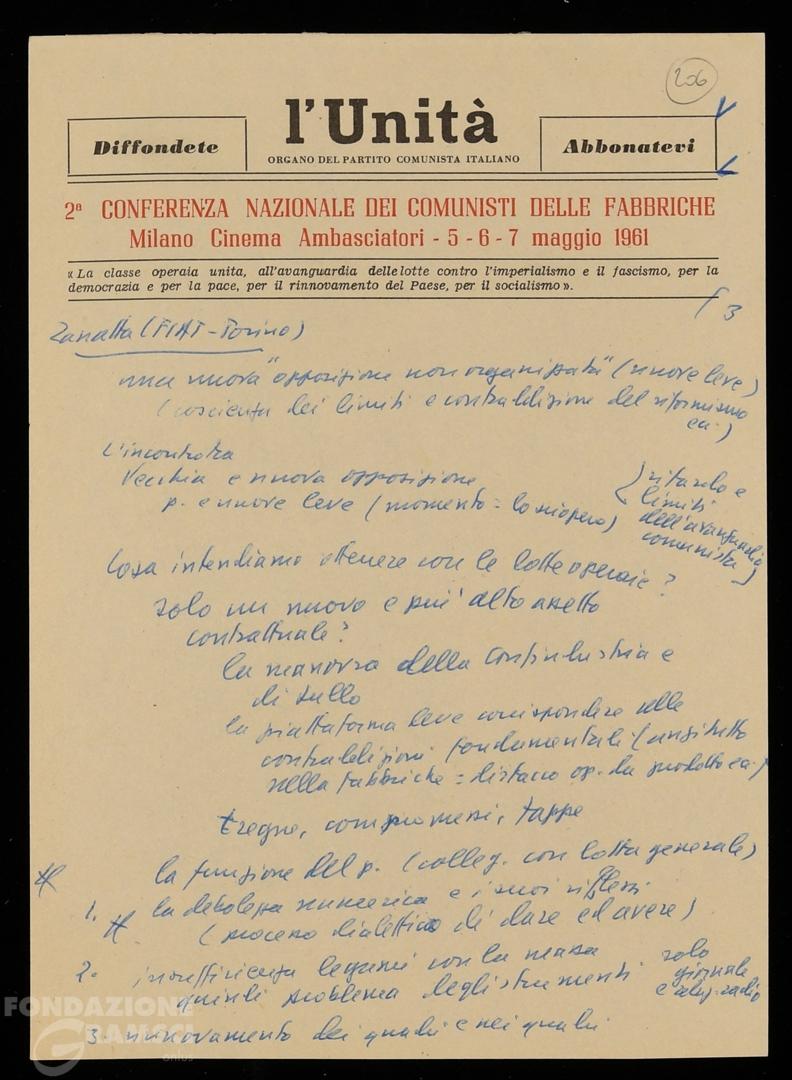 206
Diffondete
l'Unità
ORGANO DEL PARTITO COMUNISTA ITALIANO
Abbonatevi
2ª CONFERENZA NAZIONALE DEI COMUNISTI DELLE FABBRICHE
Milano Cinema Ambasciatori - 5 - 6 - 7 maggio 1961
« La classe operaia unita, all'avanguardia delle lotte contro l'imperialismo e il fascismo, per la
democrazia e per la pace, per il rinnovamento del Paese, per il socialismo ».
3
Zanatta (FIAT - Torino)
una nuova "opposizione non organizzata" (nuove leve)
(coscienza dei limiti e contraddizione del riformismo
ecc.)
L'incontro tra
Vecchia e nuova opposizione
p. e nuove leve (momento = lo sciopero)
(ritardo e
limiti
dell'avanguardia
comunista)
Cosa intendiamo ottenere con le lotte operaie?
solo un nuovo e più alto assetto
contrattuale?
la manovra della Confindustria e
di Sullo
la piattaforma deve corrispondere alle
contraddizioni fondamentali (anzitutto
nella fabbriche = distacco op. da prodotto ecc.)
Tregue, compromessi, tappe
la funzione del p. (colleg. con lotta generale)
1. la debolezza numerica e i suoi riflessi
(processo dialettico di dare ed avere)
2. insufficienza legami con la massa
quindi problema degli strumenti
solo
giornale
e radio
3. rinnovamento dei quadri e nei quadri
FONDAZIONE
GRAMSCI
onlus